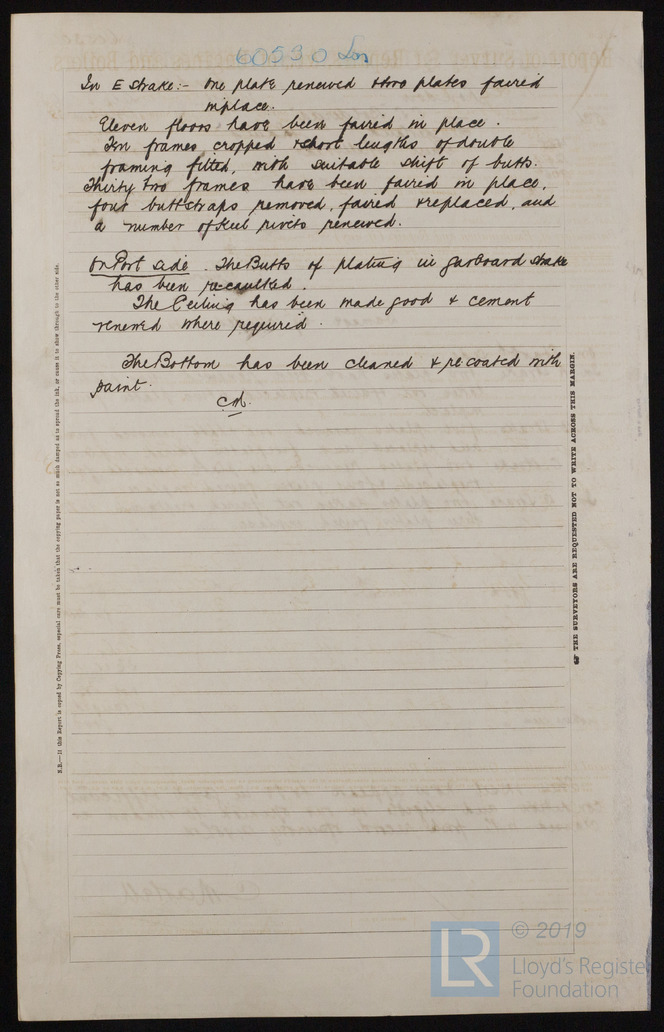 60530 Lon
In E strake:- One plate renewed & two plates faired
inplace.
Eleven floors have been faired in place.
Ten frames cropped & short lengths of double
framing fitted, with suitable shift of butts.
Thirty two frames have been faired in place,
four buttstraps removed, faired & replaced, and
a number of keel rivets renewed.
On Port side. The Butts of plating in garboard strake
has been recaulked.
The Ceiling has been made good & cement
renewed where required.
The Bottom has been cleaned & recoated with
paint.
N.B.—If this Report is copied by Copying Press, especial care must be taken that the copying paper is not so much damped as to spread the ink, or cause it to show through to the other side.
THE SURVEYORS ARE REQUESTED NOT TO WRITE ACROSS THIS MARGIN.
LR
© 2019
Lloyd's Registe
Foundation